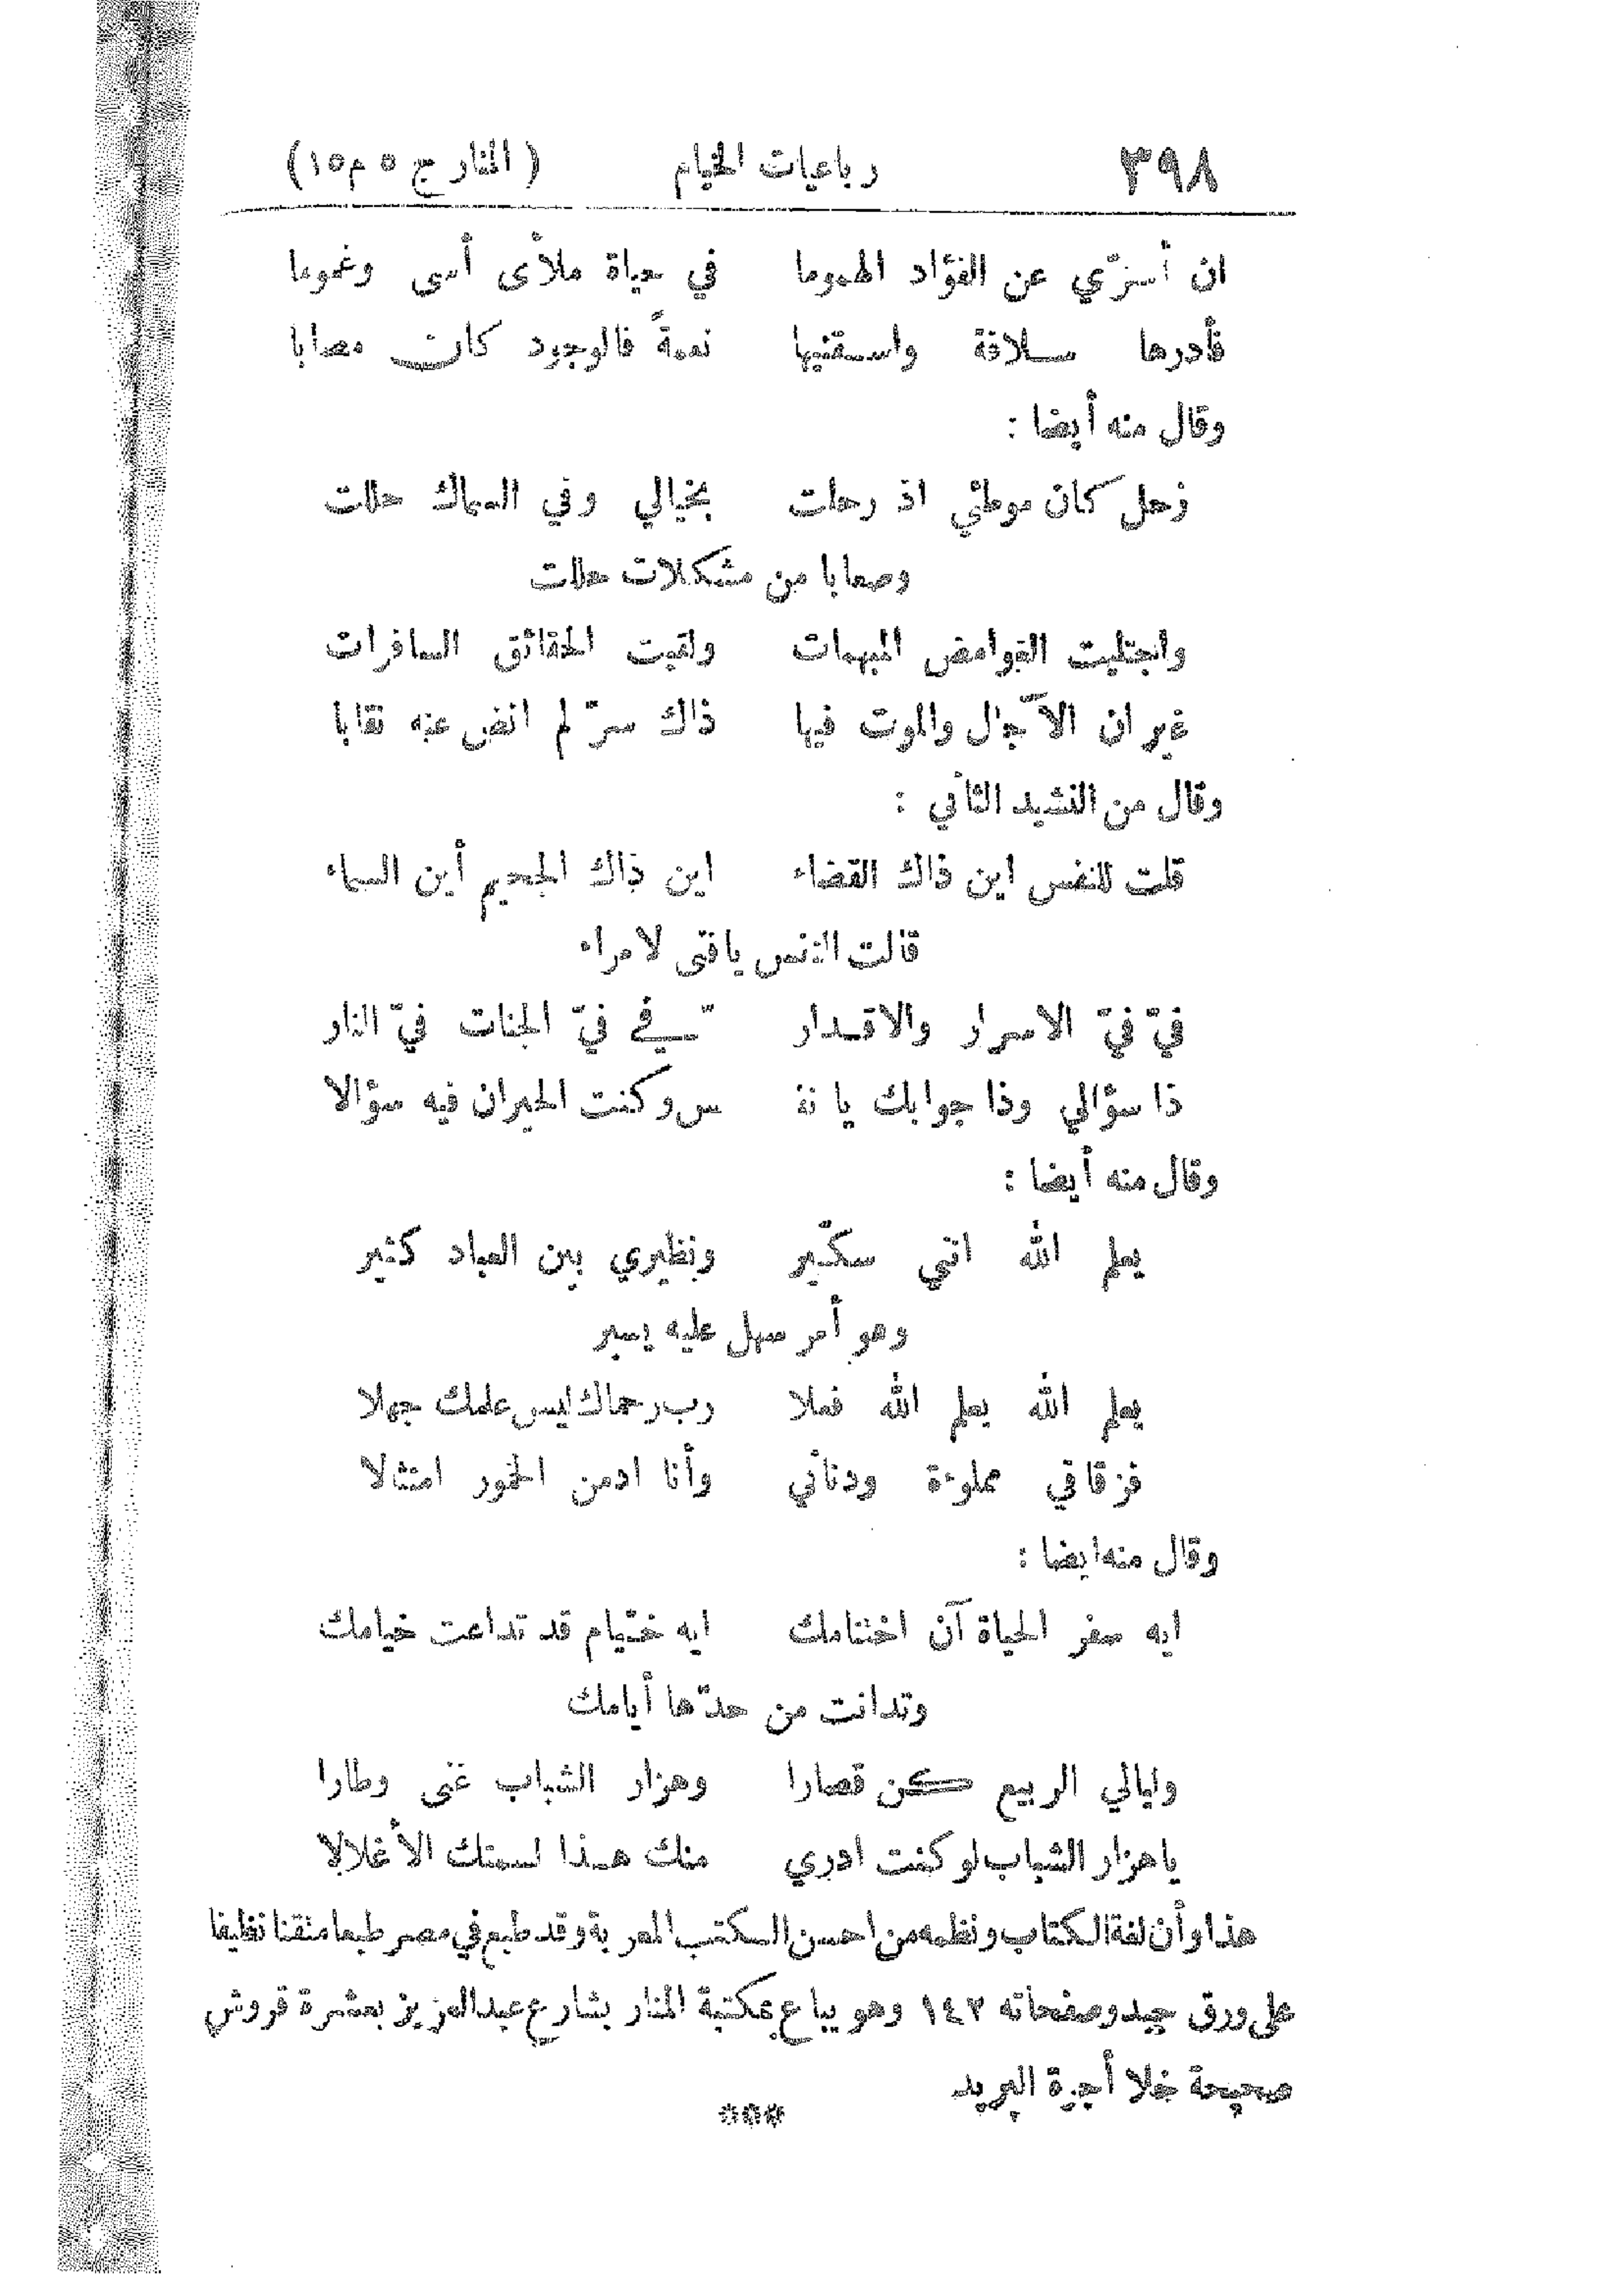 ٣٩٨ رباعيات الخيام ( المنار ج ٥ م ١٥)
ان أسرّي عن الفؤاد الهموما في حياة ملأى أسى وغموما
فأدرها سلافة واسقنيها نعمةً فالوجود كان مصابا
وقال منه أيضا :
زحل كان موطئي اذ رحلت بخيالي وفي السماك حللت
وصعابا من مشكلات حللت
واجتليت الغوامض المبهمات ولقيت الحقائق السافرات
غير ان الآجال والموت فيها ذاك سرّ لم انض عنه نقابا
وقال من النشيد الثاني :
قلت للنفس اين ذاك القضاء اين ذاك الجحيم أين السماء
قالت النفس يا فتى لا مراء
فيّ فيّ الاسرار والاقدار فيّ في فيّ الجنات فيّ النار
ذا سؤالي وذا جوابك يا نفـ ـس وكنت الحيران فيه سؤالا
وقال منه أيضا :
يعلم الله انني سكّير ونظيري بين العباد كثير
وهو أمر سهل عليه يسير
يعلم الله يعلم الله فعلا رب رحماك ليس علمك جهلا
فزقاقي مملوءة ودناني وأنا ادمن الخمور امتثالا
وقال منه ايضا :
ايه سفر الحياة آن اختتامك ايه خيّام قد تداعت خيامك
وتدانت من حدّها أيامك
وليالي الربيع كن قصارا وهزار الشباب غنى وطارا
يا هزار الشباب لو كنت ادري منك هذا لسمتك الأغلالا
هذا وأن لغة الكتاب ونظمه من احسن الكتب المعربة وقد طبع في مصر طبعا متقنا نظيفا
على ورق جيد وصفحاته ١٤٢ وهو يباع بمكتبة المنار بشارع عبد العزيز بعشرة قروش
صحيحة خلا أجرة البريد
***